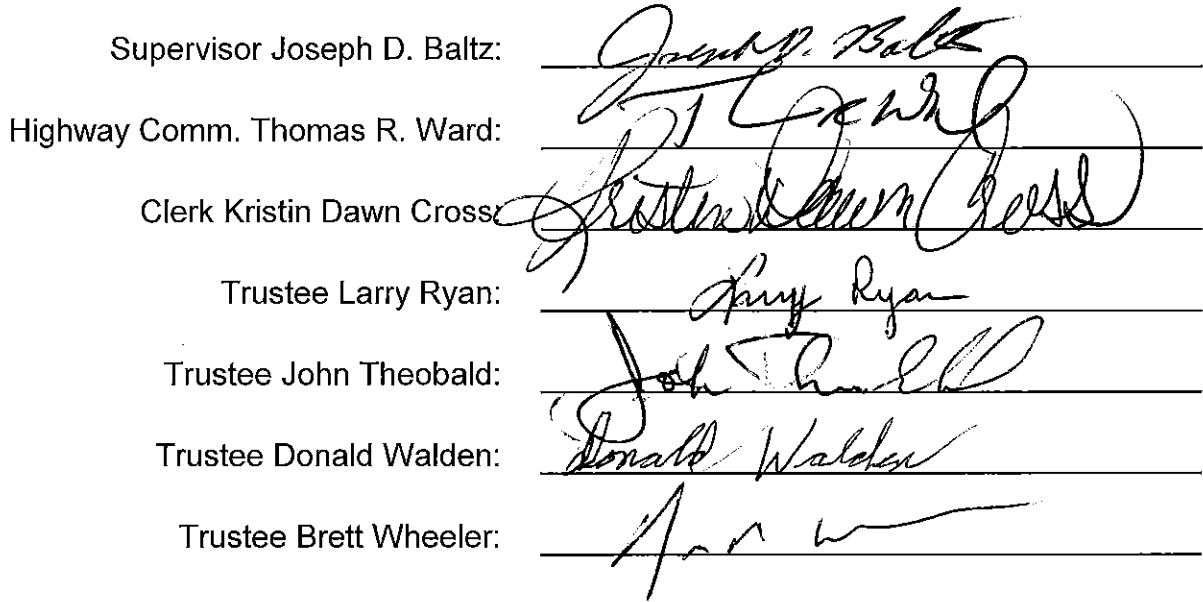 Supervisor Joseph D. Baltz: Joseph D. Baltz
Highway Comm. Thomas R. Ward:
Clerk Kristin Dawn Cross: Kristin Dawn Cross
Trustee Larry Ryan: Larry Ryan
Trustee John Theobald: John Theobald
Trustee Donald Walden: Donald Walden
Trustee Brett Wheeler: